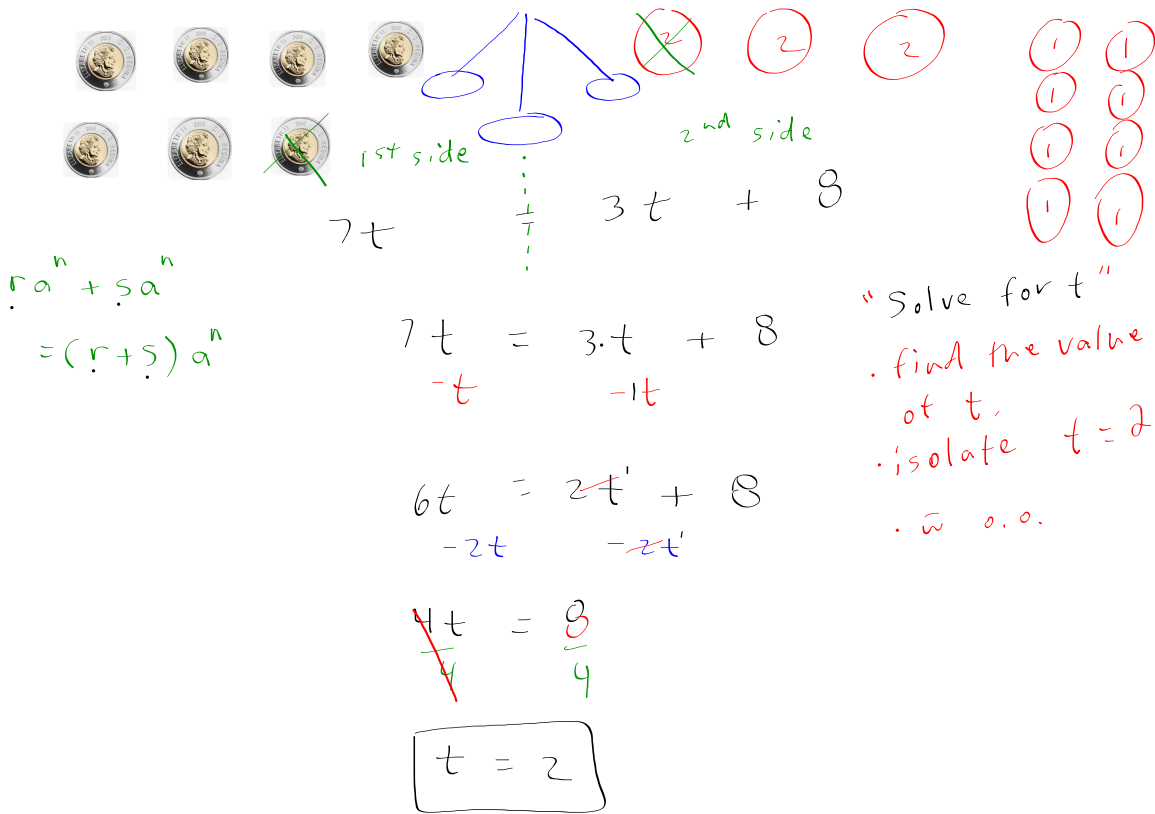 2 2 2
1 1
1 1
1 1
1 1
1st side
2nd side
7t = 3t + 8
ra^n + sa^n
= (r + s) a^n
7t = 3·t + 8
-t -1t
6t = 2t' + 8
-2t -2t'
4t = 8
4 4
t = 2
"Solve for t"
· find the value
of t.
· isolate t = 2